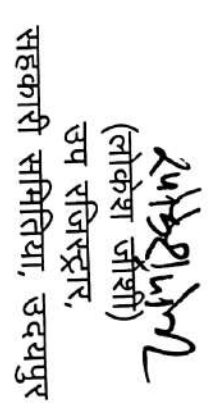 (लोकेश जोशी)
उप रजिस्ट्रार,
सहकारी समितिया, उदयपुर